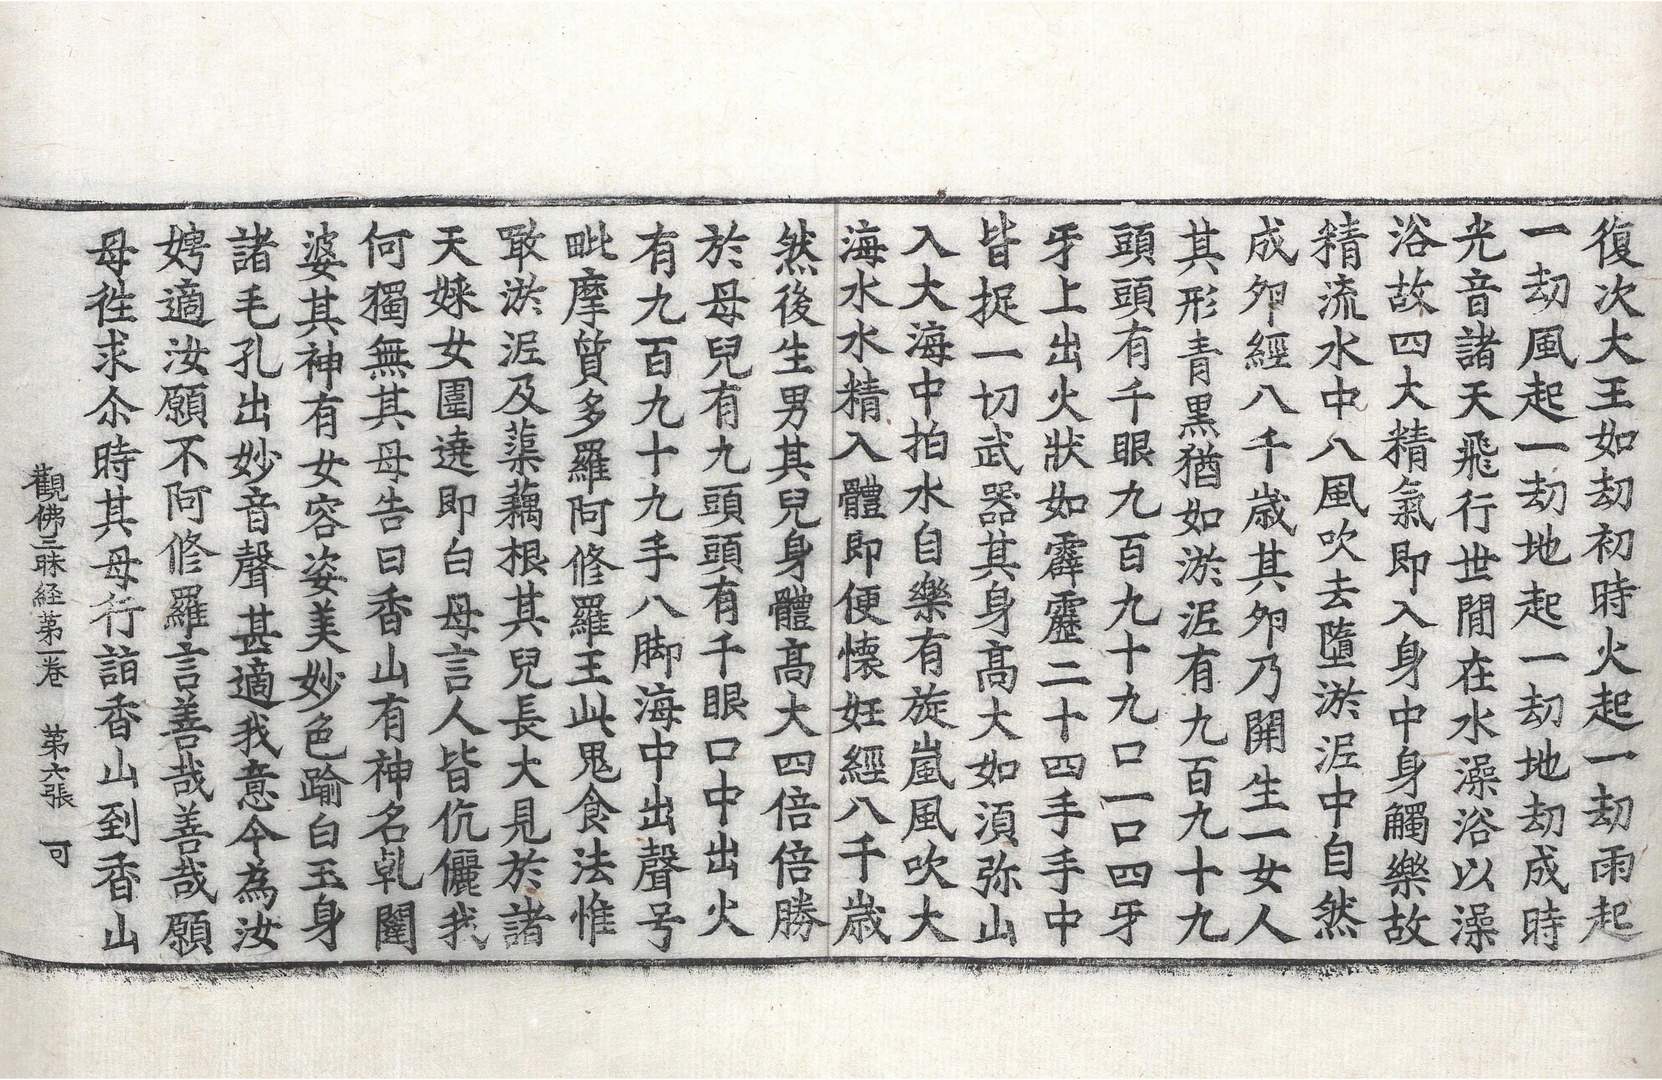 復次大王如劫初時火起一劫雨起
一劫風起一劫地起一劫地劫成時
光音諸天飛行世閒在水澡浴以澡
浴故四大精氣即入身中身觸樂故
精流水中八風吹去墮淤泥中自然
成卵經八千歲其卵乃開生一女人
其形青黑猶如淤泥有九百九十九
頭頭有千眼九百九十九口一口四牙
牙上出火狀如霹靂二十四手手中
皆捉一切武器其身高大如湏弥山
入大海中拍水自樂有旋嵐風吹大
海水水精入體即便懷妊經八千歲
然後生男其兒身體高大四倍倍勝
於母兒有九頭頭有千眼口中出火
有九百九十九手八脚海中出聲号
毗摩質多羅阿修羅王此鬼食法惟
噉淤泥及蕖藕根其兒長大見於諸
天婇女圍遶即白母言人皆伉儷我
何獨無其母告曰香山有神名乹闥
婆其神有女容姿美妙色踰白玉身
諸毛孔出妙音聲甚適我意今為汝
娉適汝願不阿修羅言善哉善哉願
母徃求尒時其母行詣香山到香山
觀佛三昧経第一卷 第六張 可